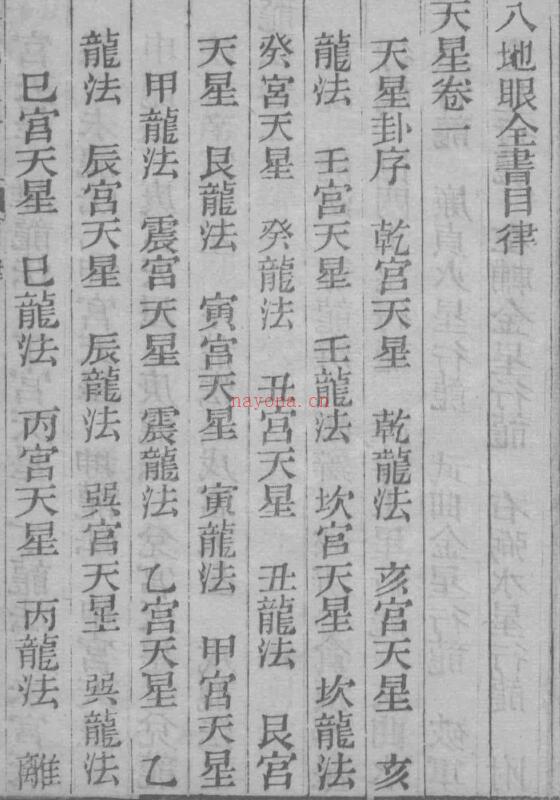 入地眼全書目律
天星卷一
天星卦序 乾宮天星 乾龍法 亥宮天星 亥
龍法 壬宮天星 壬龍法 坎宮天星 坎龍法
癸宮天星 癸龍法 丑宮天星 丑龍法 艮宮
天星 艮龍法 寅宮天星 寅龍法 甲宮天星
甲龍法 震宮天星 震龍法 乙宮天星 乙
龍法 辰宮天星 辰龍法 巺宮天星 巺龍法
巳宮天星 巳龍法 丙宮天星 丙龍法 離
nayona.cn